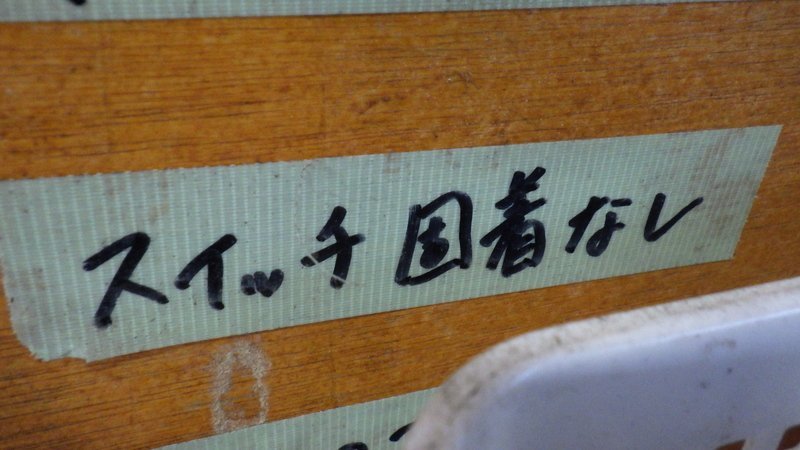 スイッチ固着なし